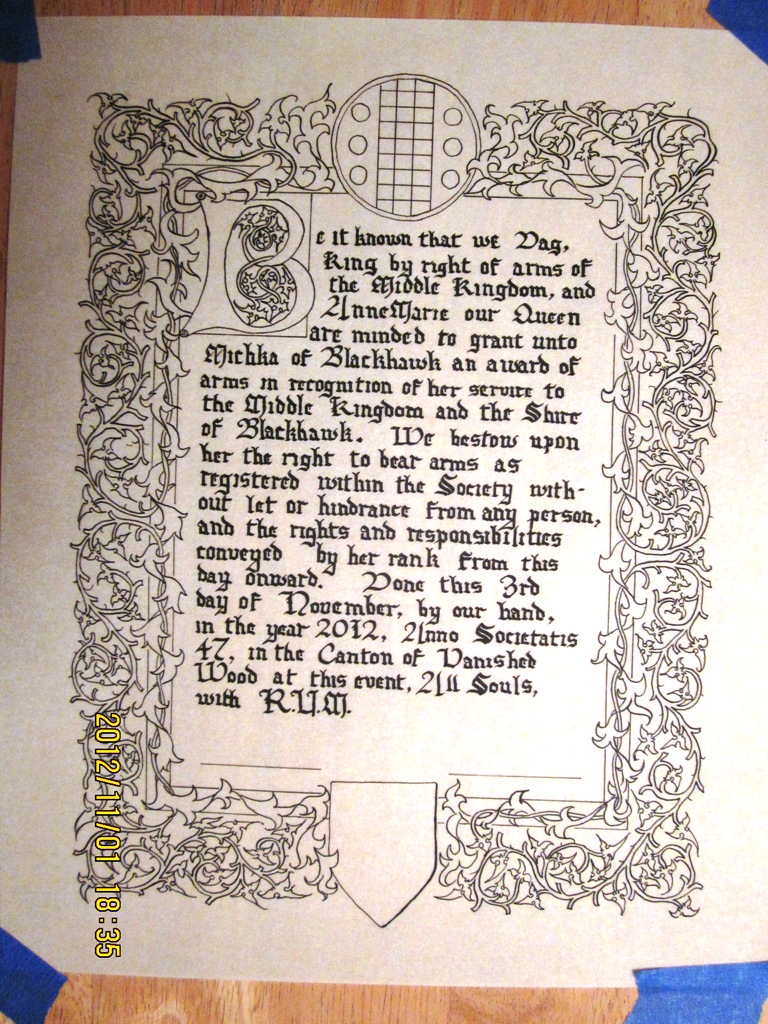 Be it known that we Dag,
King by right of arms of
the Middle Kingdom, and
AnneMarie our Queen
are minded to grant unto
Michka of Blackhawk an award of
arms in recognition of her service to
the Middle Kingdom and the Shire
of Blackhawk. We bestow upon
her the right to bear arms as
registered within the Society with-
out let or hindrance from any person,
and the rights and responsibilities
conveyed by her rank from this
day onward. Done this 3rd
day of November, by our hand,
in the year 2012, Anno Societatis
47, in the Canton of Vanished
Wood at this event, All Souls,
with R.U.M.
2012/11/01 18:35